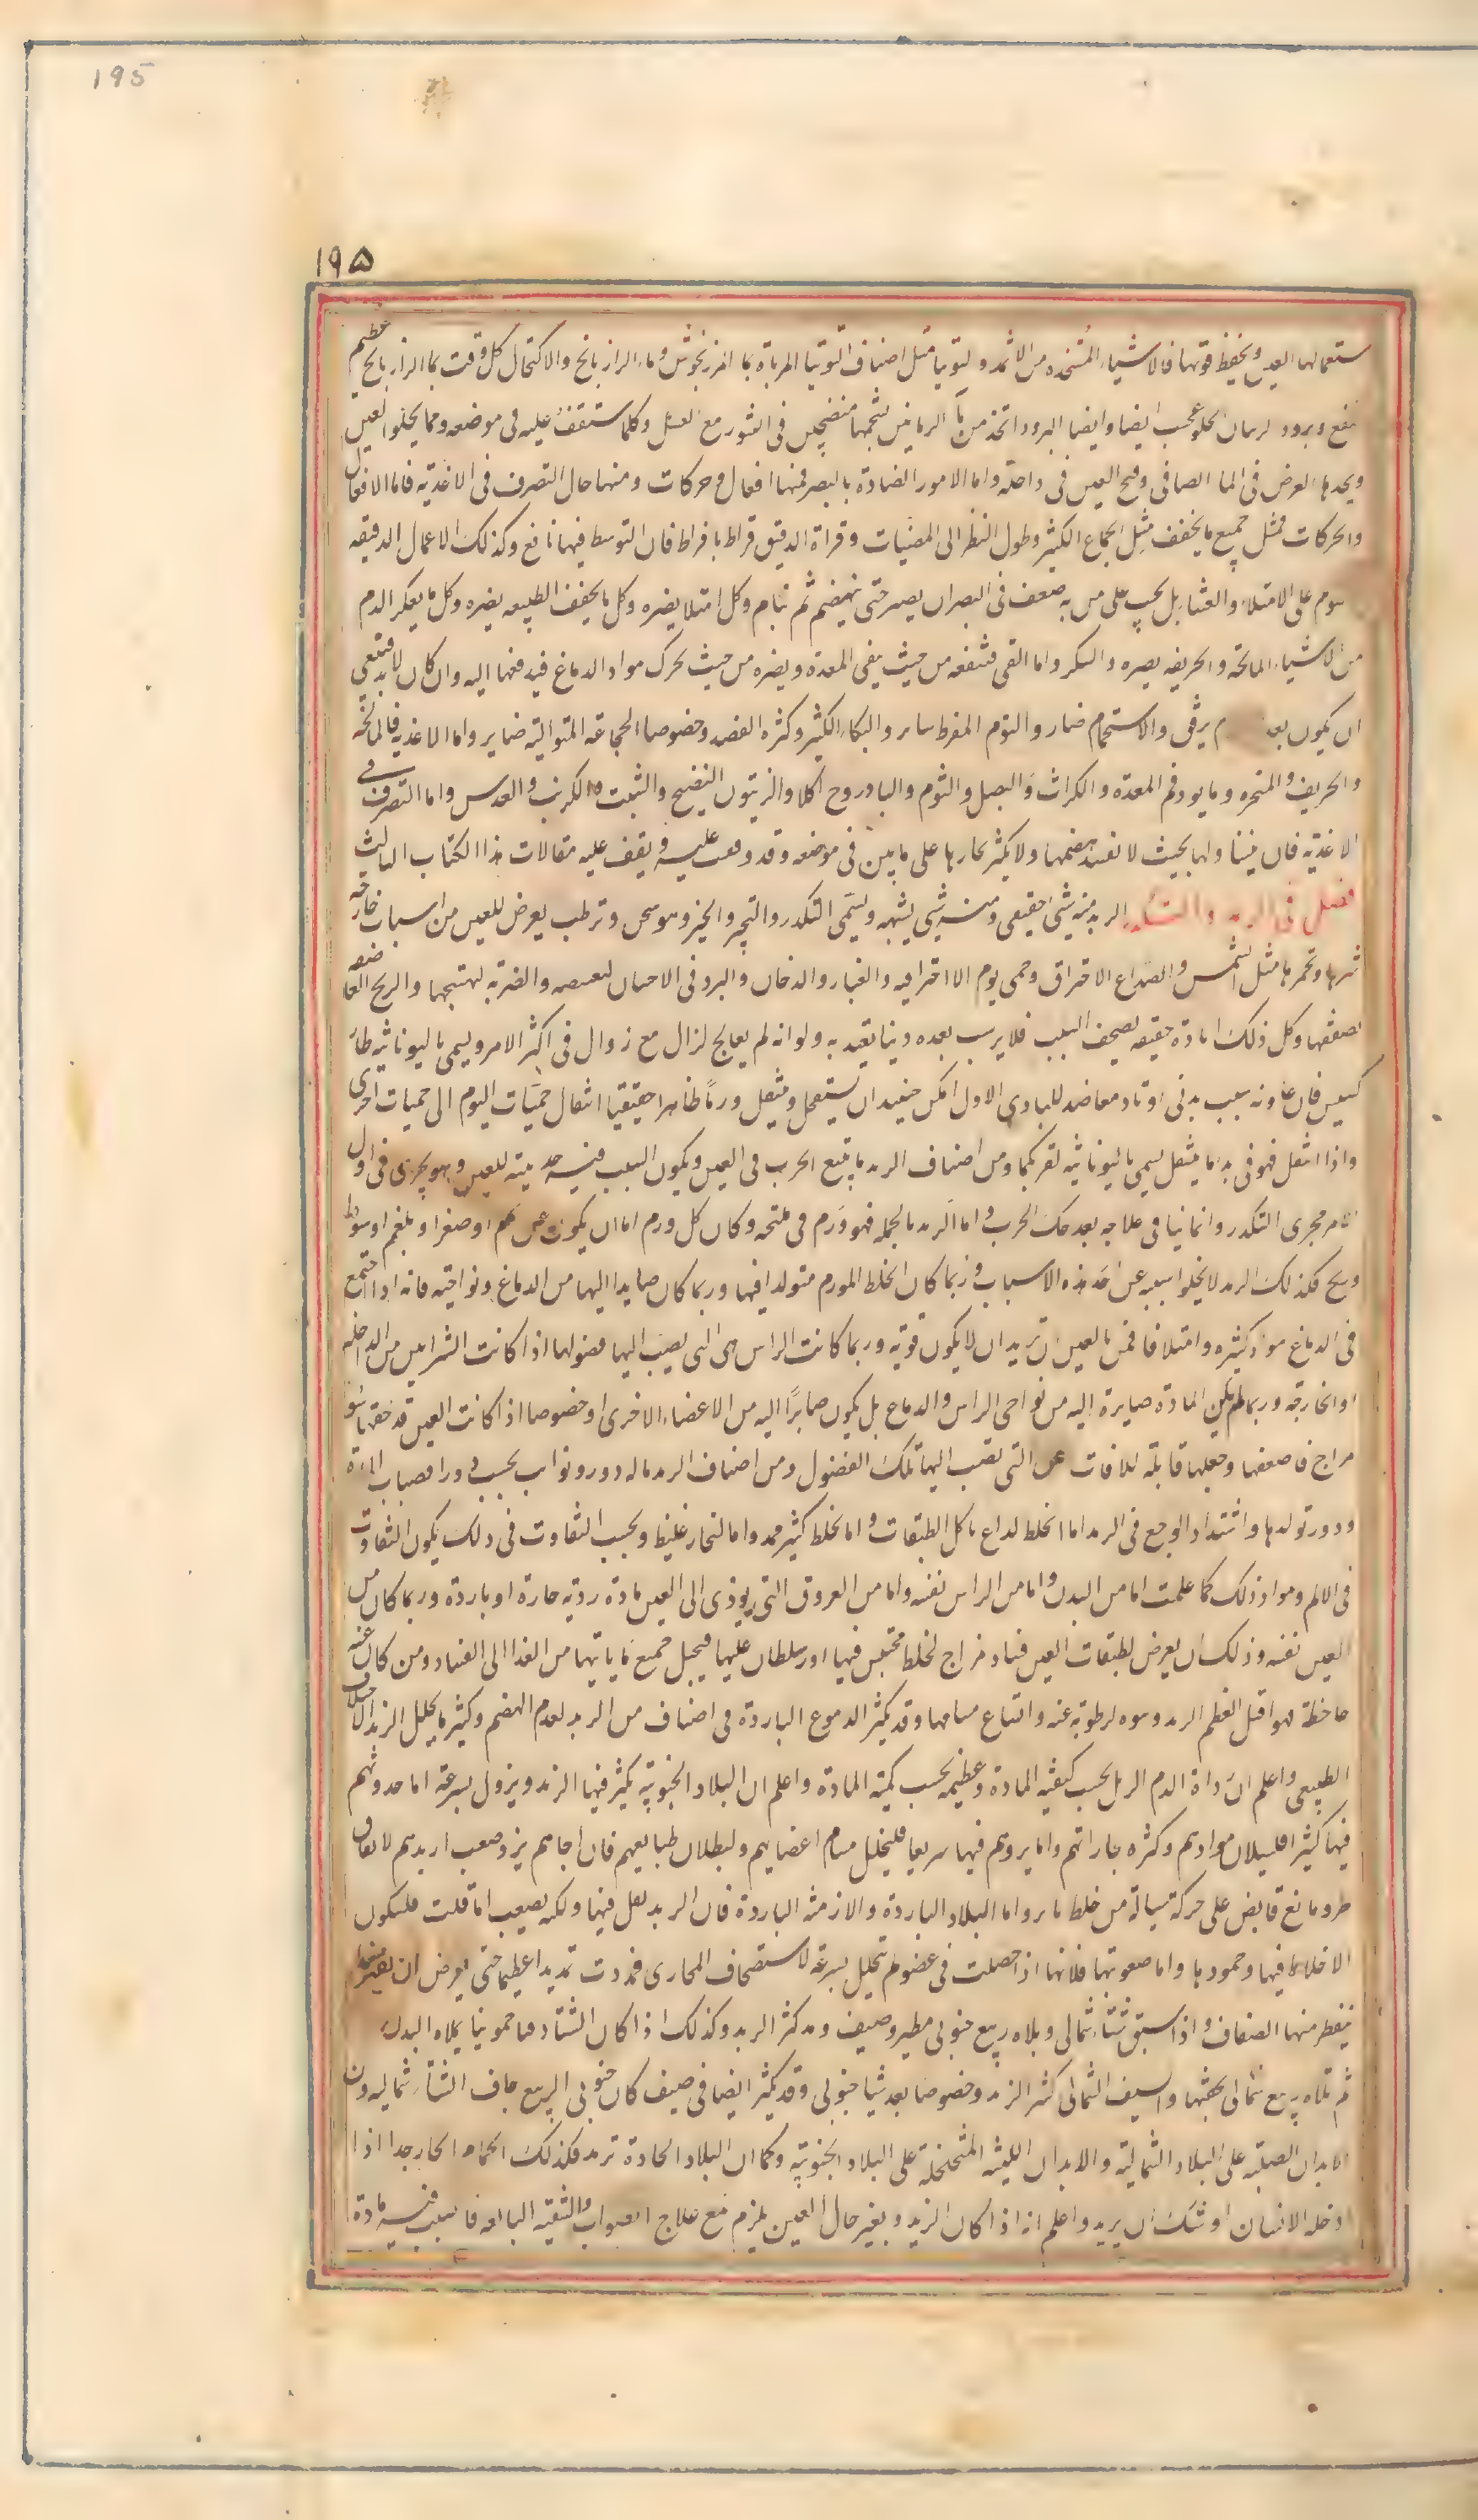 195
١٩۵
ستعمالها العين ويحفظ قوتها فالاشياء المتخذه من الاثمد والتوتيا مثل اصناف التوتيا المرباة بماء المرزنجوش وماء الرازيانج والاكتحال كل وقت بماء الرازيانج عظيم
نفع وبرود الرمان الحلو عجيب ايضا وايضا البرود المتخذ من ماء الرمانين بشحمهما منضجين فى التنور مع العسل وكلما ستقف عليه فى موضعه ومما يجلوا العين
ويحدها الغوص فى الماء الصافى وفتح العين فى داخله واما الامور الضارة بالبصر فمنها افعال وحركات ومنها حال التصرف فى الاغذيه فاما الافعال
والحركات فمثل جميع ما يجفف مثل الجماع الكثير وطول النظر الى المضيات وقراة الدقيق قراط بافراط فان التوسط فيها نافع وكذلك الاعمال الدقيقه
نوم على الامتلاء والعشاء بل يجب على من به ضعف فى البصر ان يصبر حتى ينهضم ثم ينام وكل امتلا يضره وكل ما يجفف الطبيعه يضره وكل ما يعكر الدم
من الاشياء المالحة والحريفه يضره والسكر واما القى فينفعه من حيث ينقى المعدة ويضره من حيث يحرك مواد الدماغ فيدفعها اليه وان كان لابد فينبغى
ان يكون بعد برفق والاستحمام ضار والنوم المفرط ضار والبكاء الكثير وكثره الفصد وخصوصا الحجامة المتواليه ضاير واما الاغذيه فالمالحة
والحريفه والمبخره وما يوذى فم المعدة والكراث والبصل والثوم والبادروج اكلا والزيتون النضيج والشبت والكرنب والعدس واما التصرف فى
الاغذية فان يتناولها بحيث لا تفسد هضمها ولا يكثر بخارها على ما بين فى موضعه وقد وقفت عليه ويقف عليه مقالات هذا الكتاب الثالث
فصل فى الرمد والتكدر الرمد منه شى حقيقى ومنه شى يشبهه ويسمى التكدر والتخثر وهو سخن وترطب يعرض للعين من اسباب خارجه
تثيرها وتحمرها مثل الشمس والصداع الاحتراقى وحمى يوم الاحتراقيه والغبار والدخان والبرد فى الاحيان لتقبضه والضربه لتهييجها والريح العاصفه
بصفقها وكل ذلك اثارة خفيفه يصحب السبب فلا يريث بعده ريثا يعتد به ولو انه لم يعالج لزال مع زوال فى اكثر الامر ويسمى باليونانيه طار
كسيس فان عاونه سبب بدنى او باد معاضد للبادى الاول امكن حينيذ ان يستفحل وينتقل ورما ظاهرا حقيقيا انتقال حميات اليوم الى حميات اخرى
واذا انتقل فهو فى بدء ما ينتقل يسمى باليونانيه لقويما ومن اصناف الرمد ما يتبع الجرب فى العين ويكون السبب فيه للعين وهو يجرى فى اول
الامر مجرى التكدر وانما ياتى علاجه بعد حك الجرب واما الرمد بالجمله فهو ورم فى ملتحمه وكان كل ورم اما ان يكون عن دم او صفرا وبلغم او سودا
وريح فكذلك الرمد لا يخلوا سببه عن احد هذه الاسباب وربما كان الخلط المورم متولدا فيها وربما كان صايرا اليها من الدماغ ونواحيه فانه اذا اجتمع
فى الدماغ مواد كثيره وامتلا فاقمن بالعين ان ترمد ان لا يكون قويه وربما كانت الراس هى التى يصب اليها فضولها اذا كانت الشرايين من الداخله
او الخارجه وربما لم يكن الماده صايرة اليه من نواحى الراس والدماغ بل يكون صايرا اليه من الاعضاء الاخرى او خصوصا اذا كانت العين قد لحقها سوء
مزاج فاضعفها وجعلها قابله للافات هى التى تصب اليها تلك الفضول ومن اصناف الرمد ماله دور ونوايب بحسب دور انصباب المادة
ودور تولدها واشتداد الوجع فى الرمد اما لخلط لذاع ياكل الطبقات واما لخلط كثير ممدد واما لبخار غليظ وبحسب التفاوت فى ذلك يكون التفاوت
فى الالم ومواد ذلك كما علمت اما من البدن واما من الراس نفسه واما من العروق التى يودى الى العين مادة رديه حارة او باردة وربما كان من
العين نفسه وذلك ان يعرض لطبقات العين فساد مزاج لخلط محتبس فيها او رسلطان عليها فيحيل جميع ما ياتيها من الغذا الى الفساد ومن كان عينه
جاحظة فهو اقبل لعظم الرمد ونتوه لرطوبة عينه واتساع مسامها وقد يكثر الدموع الباردة فى اصناف من الرمد لعدم الهضم وكثير ما يحلل الرمد اختلاف
الطبيعى واعلم ان رداة الدم الرمد بحسب كيفيه المادة وعظمه بحسب كمية المادة واعلم ان البلاد الجنوبيه يكثر فيها الرمد ويزول بسرعة اما حدوثه بهم
فيها كثيرا فلسيلان موادهم وكثره بخاراتهم واما بروءهم فيها سريعا فلتخلخل مسام اعضايهم ولبطلان طبايعهم فان فاجاهم برد صعب ارمدهم لاتفاق
طرو مانع قابض على حركة سيالة من خلط ثاير واما البلاد الباردة والازمنه الباردة فان الرمد يقل فيها ولكنه يصعب اما قلته فلسكون
الاخلاط فيها وجمودها واما صعوبتها فلانها اذا حصلت فى عضو لم يتحلل بسرعة لاستحصاف المجارى فمددت تمديدا عظيما حتى يعرض ان يفطر
ينفطر منها الصفاق واذا سبق شتاء شمالى وتلاه ربيع جنوبى مطير وصيف ومد كثر الرمد وكذلك اذا كان الشتاء دفيا جنوبيا يملاء البدن
ثم تلاه ربيع شمالى يحقنها والصيف الشمالى كثير الرمد وخصوصا بعد شتا جنوبى وقد يكثر ايضا فى صيف كان جنوبى الربيع جاف الشتاء شماليه
الابدان الصلبه على البلاد الشماليه والابدان اللينه المتخلخلة على البلاد الجنوبيه وكما ان البلاد الحارة ترمد فكذلك الحمام الحار جدا اذا
دخله الانسان اوشك ان يرمد واعلم انه اذا كان الرمد وتغير حال العين يلزم مع علاج الصواب والتنقيه البالغه فالسبب فيه مادة